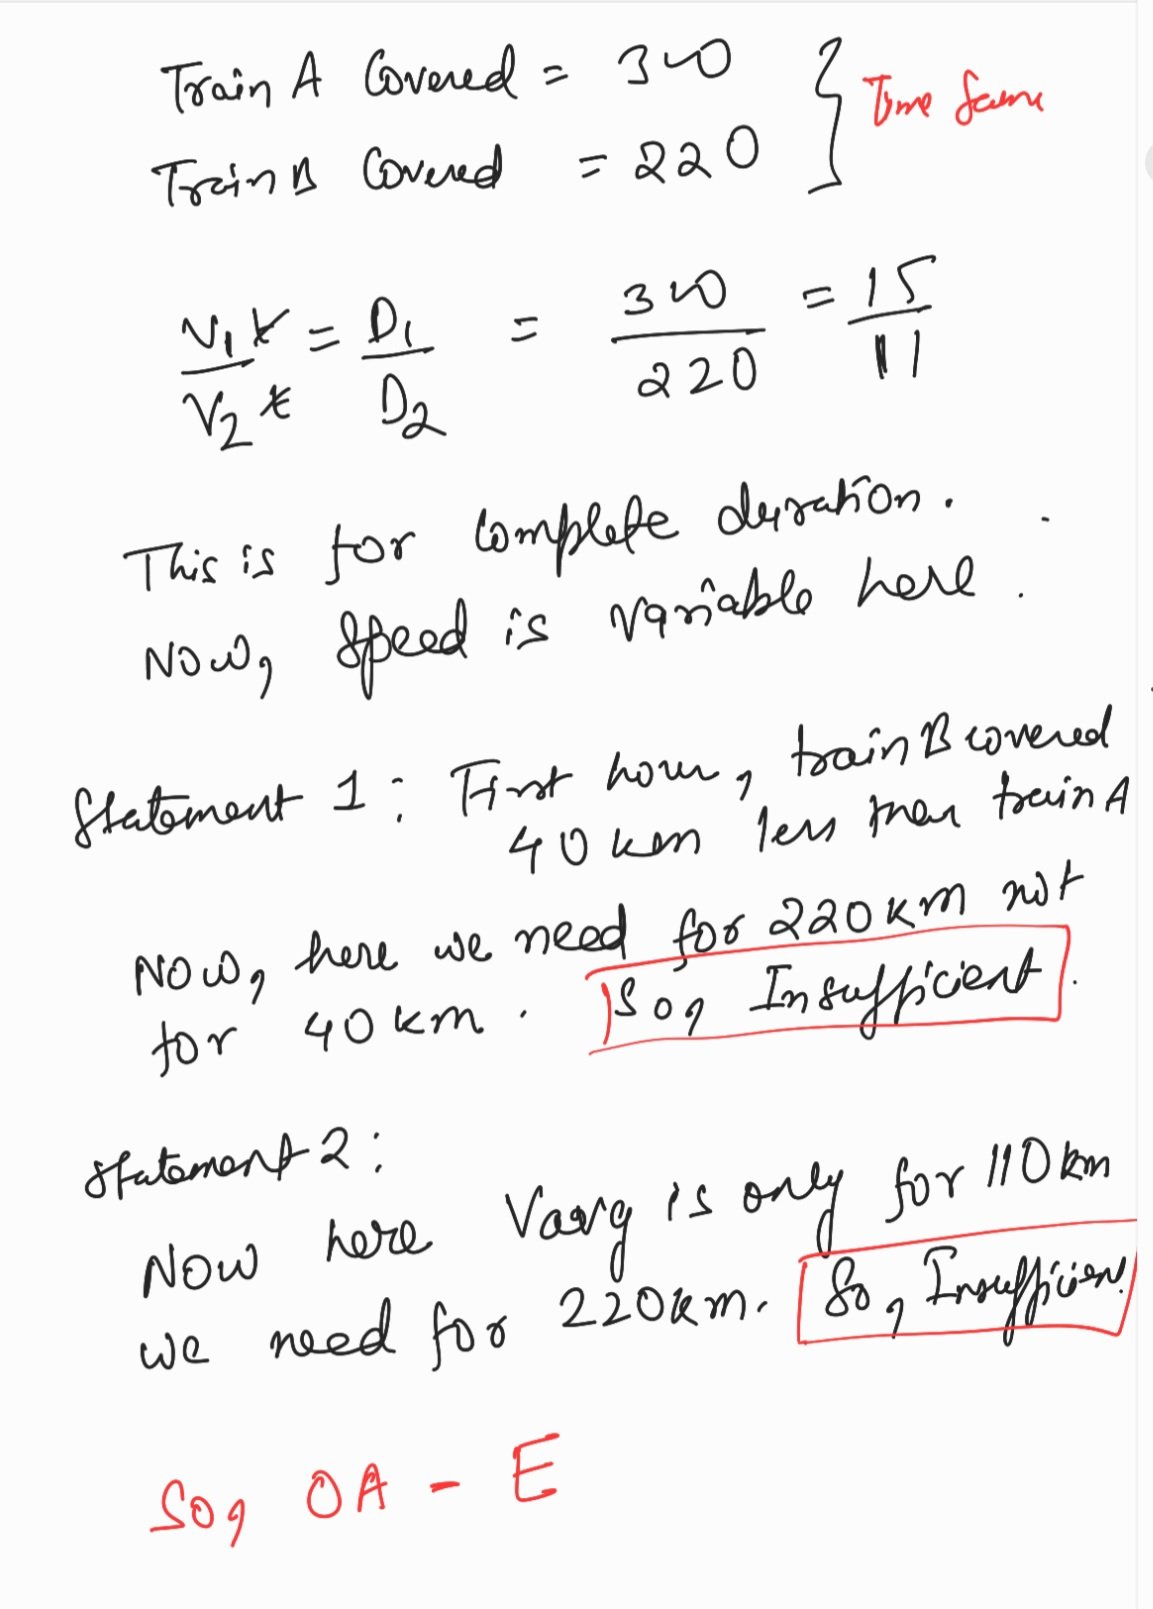 Train A Covered = 300 } Time Same
Train B Covered = 220
V₁t/V₂t = D₁/D₂ = 300/220 = 15/11
This is for complete duration.
Now, Speed is variable here.
Statement 1: First hour, train B covered
40 km less than train A
Now, here we need for 220 km not
for 40 km. So, Insufficient.
Statement 2:
Now here Vavg is only for 110 km
we need for 220 km. So, Insufficient
So, OA - E